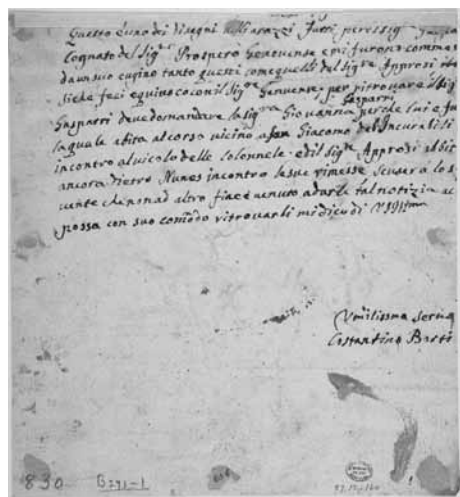 Questo è uno di disegni delli arazzi fatti per il sig.re
Cognato del Sig.re Prospero Genovense e mi furono comme
da un suo cugino tanto questi come quelli del sig.re Approsi
Siche feci equivoco con il sig.re Genuense; per ritrovare il Sig
Gasparri deve domandare la sig.ra Giovanna Gasparri perche lui e fu
la quale abita al corso vicino a san Giacomo del Incurabili
incontro al vicolo delle Colonnele ed il sig.re Approsi abit
ancora dietro Nunes incontro le sue rimesse scusera lo s
che non ad altro fine è venuto a darle tal notizia ac
possa con suo comodo ritrovarli mi dico di
Umilissimo Servo
Costantino Barti
830 G291-1